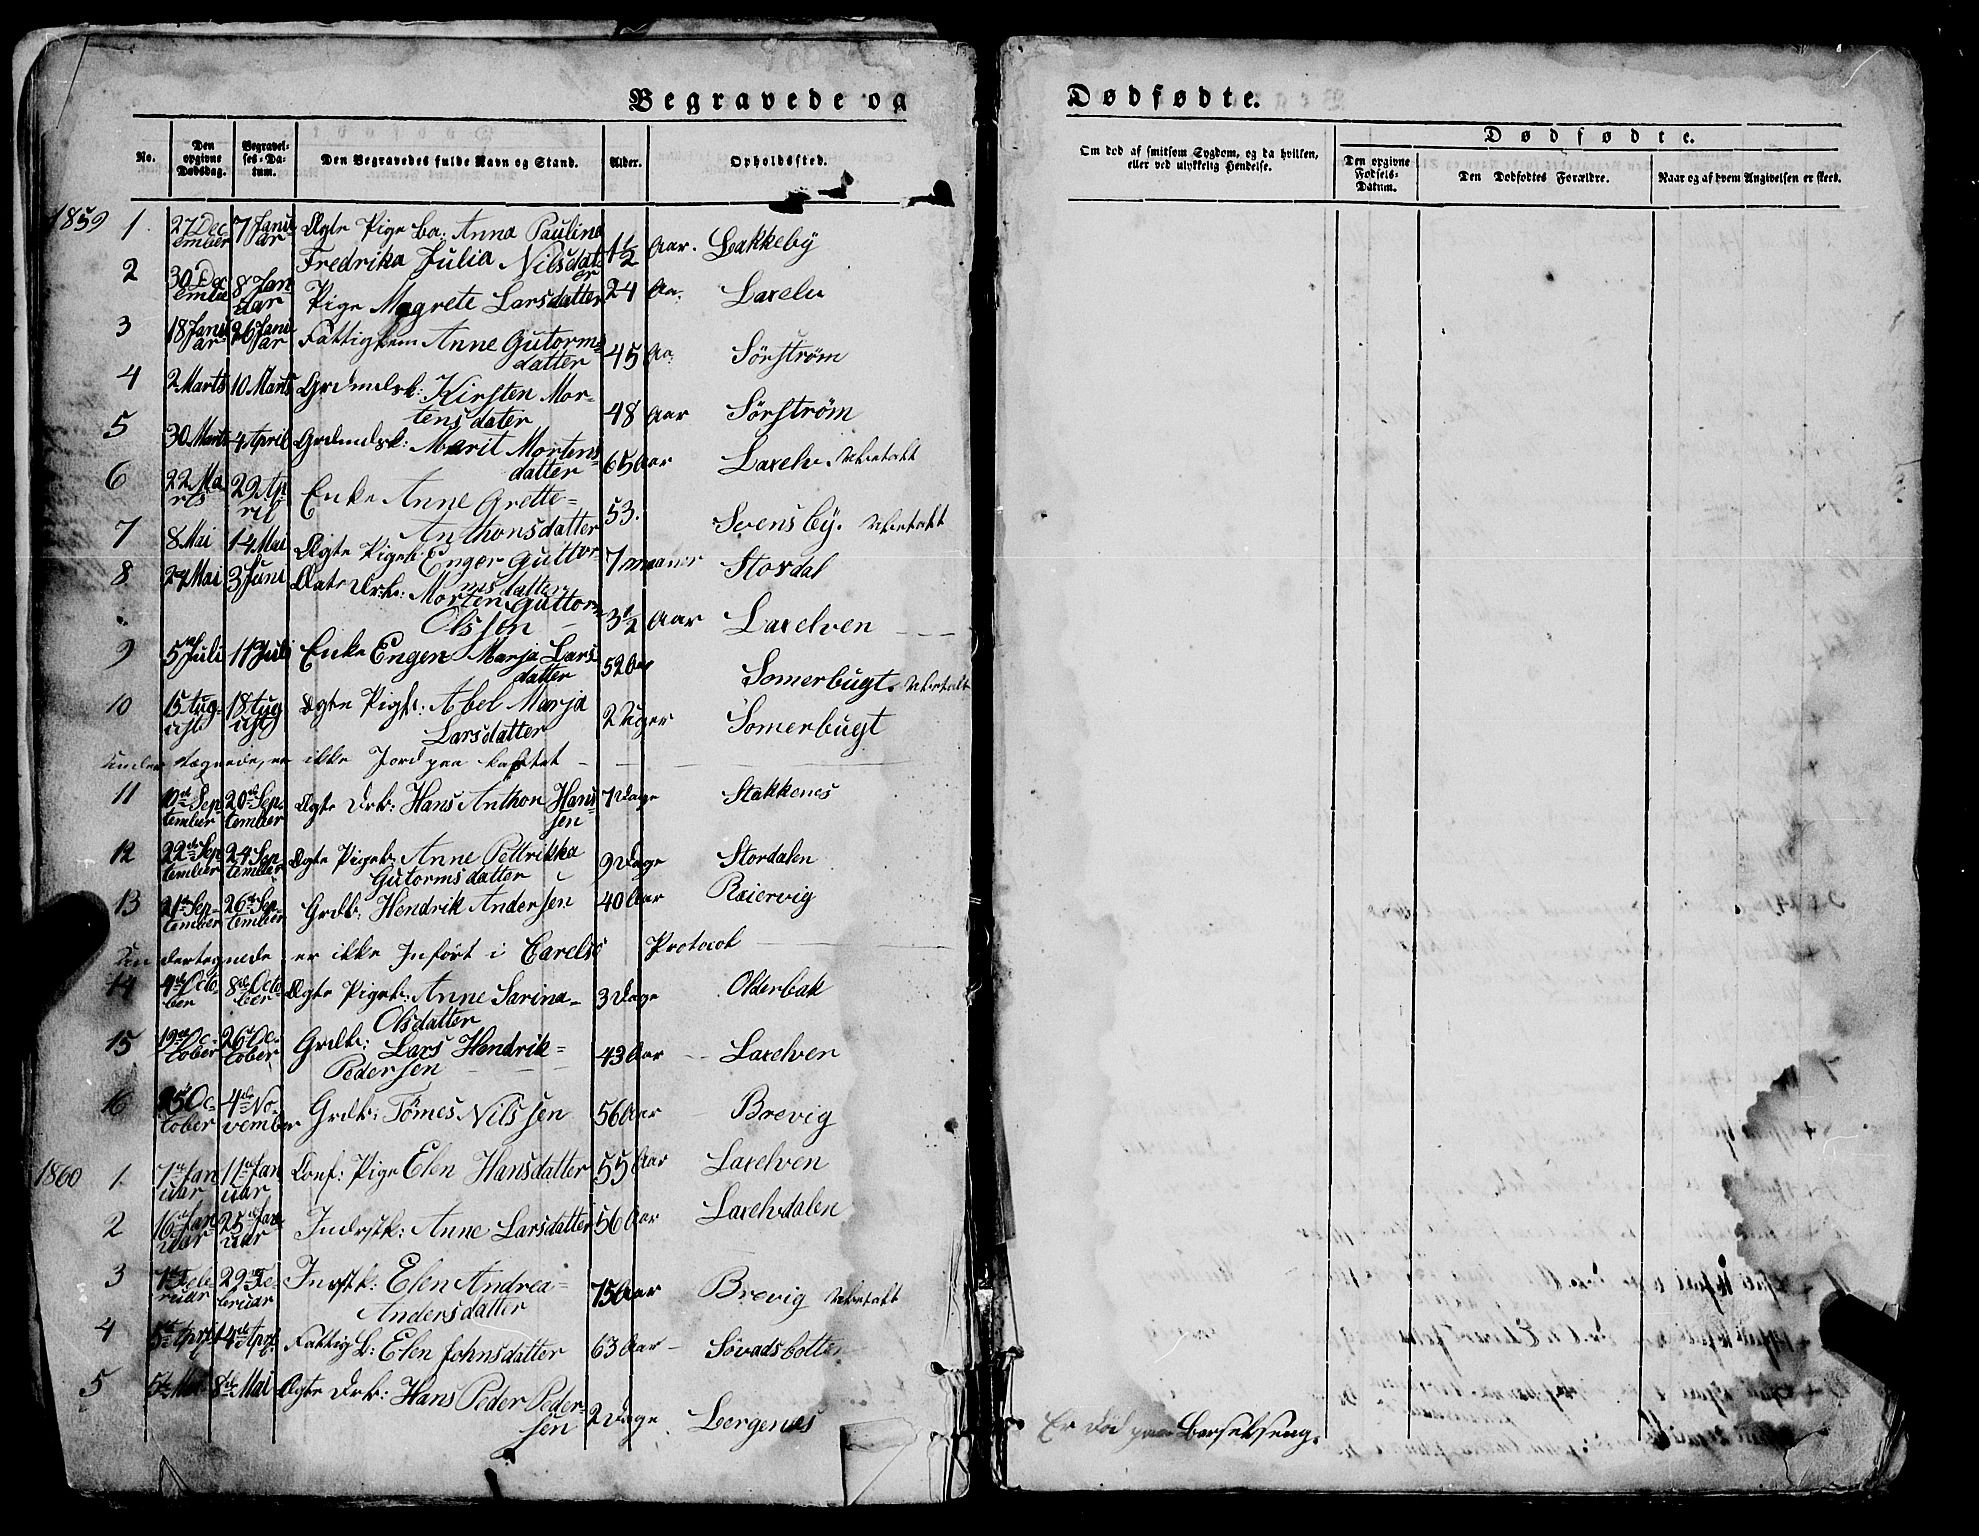 Begravede og
No.
Den opgivne Dødsdag.
Begravelses-Datum.
Den Begravedes fulde Navn og Stand.
Alder.
Opholdssted.
1859 1 27 December 7 Januar Ægte Pigeba: Anna Paulina
Fredrika Julia Nilsdatter 1½ Aar. Lakkeby
2 30 December 8 Januar Pige Magrete Larsdatter 24 Aa: Laxelv
3 18 Januar 26 Januar Fattiglem Anne Gutorms=
datter 45 Aa: Sörström
4 2 Marts 10 Marts Grdmdsk: Kirsten Mor-
tensdater 48 Aar Sörström
5 30 Marts 4 April Grdmdsk: Marit Mortens=
datter 65 Aar Laxelv. Ubetalt
6 22 Marts 29 April Enke Anne Grette=
Anthonsdatter 53. Svensby. Ubetalt
7 8 Mai 14 Mai Ægte Pigeb: Enger Guttor
msdatter 7 maaner Stordal
8 27 Mai 3 Juni Ægte Drk: Morten Guttor=
Olssen 3½ Aar Laxelven
9 5 Juli 11 Juli Enke Engen Marja Lars
datter 52 Aar Somerbugt. Ubetalt
10 15 August 18 August Ægte Pigb: Abel Marja
Larsdatter 2 Uger Somerbugt
Undertegnede, er ikke Jord paa kastet
11 19de September 20de September Ægte Drb: Hans Anthon Hans=
sen 7 Dage Stakkenes
12 22de September 24 September Ægte Pigeb: Anne Pettrikka
Gutormsdatter 9 Dage Stordalen
13 21de September 26de September Grdb: Hendrik Andersen 40 Aar Raiervig
Undertegnede er ikke Infört i Carelsö Protocol
14 4de October 8de October Ægte Pigeb: Anne Sarina=
Olsdatter 3 Dage Olderbak
15 19de October 26de October Grdb: Lars Hendrik=
Pedersen 43 Aar Laxelven
16 25 October 4de November Grdb: Tömes Nilssen 56 Aar Brevig
1860 1 7de Januar 11te Januar Conf: Pige Elen Hansdatter 55 Aar Laxelven
2 16de Januar 25de Januar Inderstk: Anne Larsdatter 56 Aar Laxelvdalen
3 7de Februar 29de Februar Inrstk: Elen Andrea=
Andersdatter 75 Aar Brevig Ubetalt
4 5te April 14de April Fattig L: Elen Johnsdatter 63 Aar Sövadsbotten
5 5te Mai 8de Mai Ægte Drb: Hans Peder Peder=
sen 2 Dage Lergenes
Dødfødte.
Om død af smitsom Sygdom, og da hvilken,
eller ved ulykkelig Hendelse.
Dødfødte.
Den opgivne Fødsels-Datum.
Den Dødfødtes Forældre.
Naar og af hvem Angivelsen er skeet.
Er död paa Barselseng.